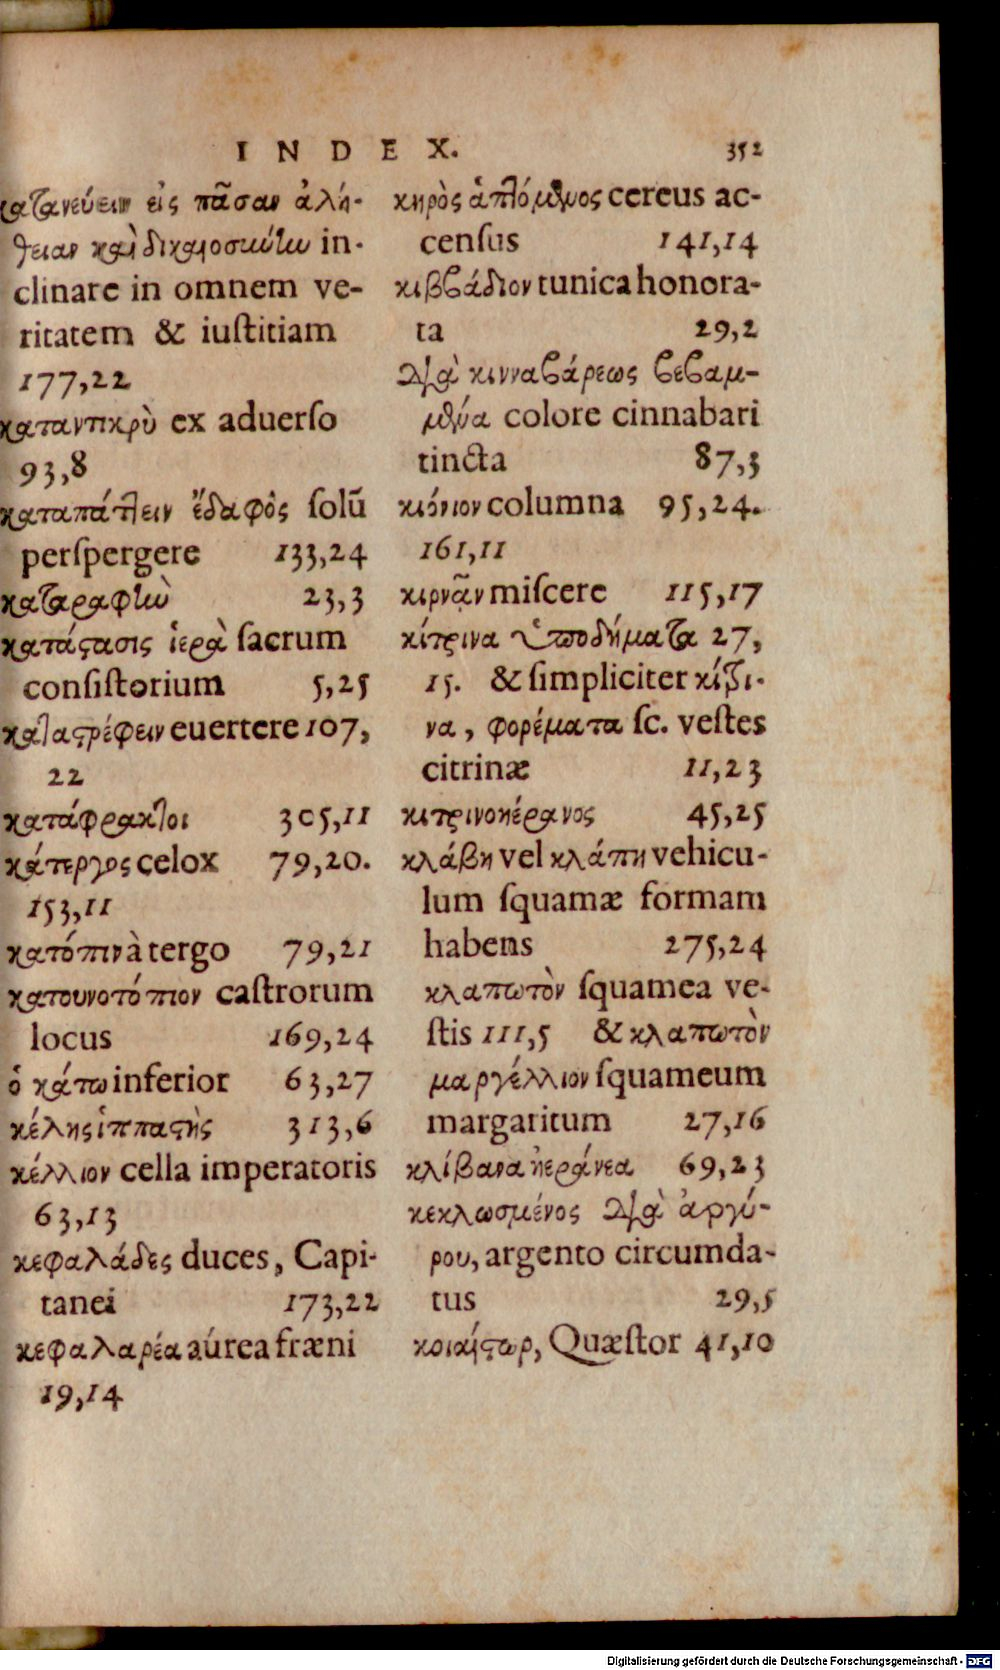 INDEX. 352
κατανεύειν εἰς πᾶσαν ἀλή-
θειαν καὶ δικαιοσύνην in-
clinare in omnem ve-
ritatem & iuſtitiam
177,22
καταντικρὺ ex aduerſo
93,8
καταπάττειν ἔδαφὸς ſolũ
perſpergere 133,24
καταραφὴν 23,3
κατάστασις ἱερὰ sacrum
conſiſtorium 5,25
καταστρέφειν euertere 107,
22
κατάφρακτοι 305,11
κάτεργος celox 79,20.
153,11
κατόπιν à tergo 79,21
κατουνοτόπιον caſtrorum
locus 169,24
ὁ κάτω inferior 63,27
κέλης ἱππαστὴς 313,6
κέλλιον cella imperatoris
63,13
κεφαλάδες duces, Capi-
tanei 173,22
κεφαλαρέα aurea fræni
19,14
κηρὸς ἁπτόμενος cereus ac-
cenſus 141,14
κιββάδιον tunica honora-
ta 29,2
διὰ κινναβάρεως βεβαμ-
μένα colore cinnabari
tincta 87,3
κιόνιον columna 95,24.
161,11
κιρνᾶν miſcere 115,17
κίτρινα ὑποδήματα 27,
15. & ſimpliciter κίτρι-
να, φορέματα ſc. veſtes
citrinæ 11,23
κιτρινοκέρανος 45,25
κλάβη vel κλάπη vehicu-
lum ſquamæ formam
habens 275,24
κλαπωτὸν ſquamea ve-
ſtis 111,5 & κλαπωτὸν
μαργέλλιον ſquameum
margaritum 27,16
κλίβανα κεράνεα 69,23
κεκλωσμένος διὰ ἀργύ-
ρου, argento circumda-
tus 29,5
κοιαίστωρ, Quæſtor 41,10
Digitalisierung gefördert durch die Deutsche Forschungsgemeinschaft - DFG